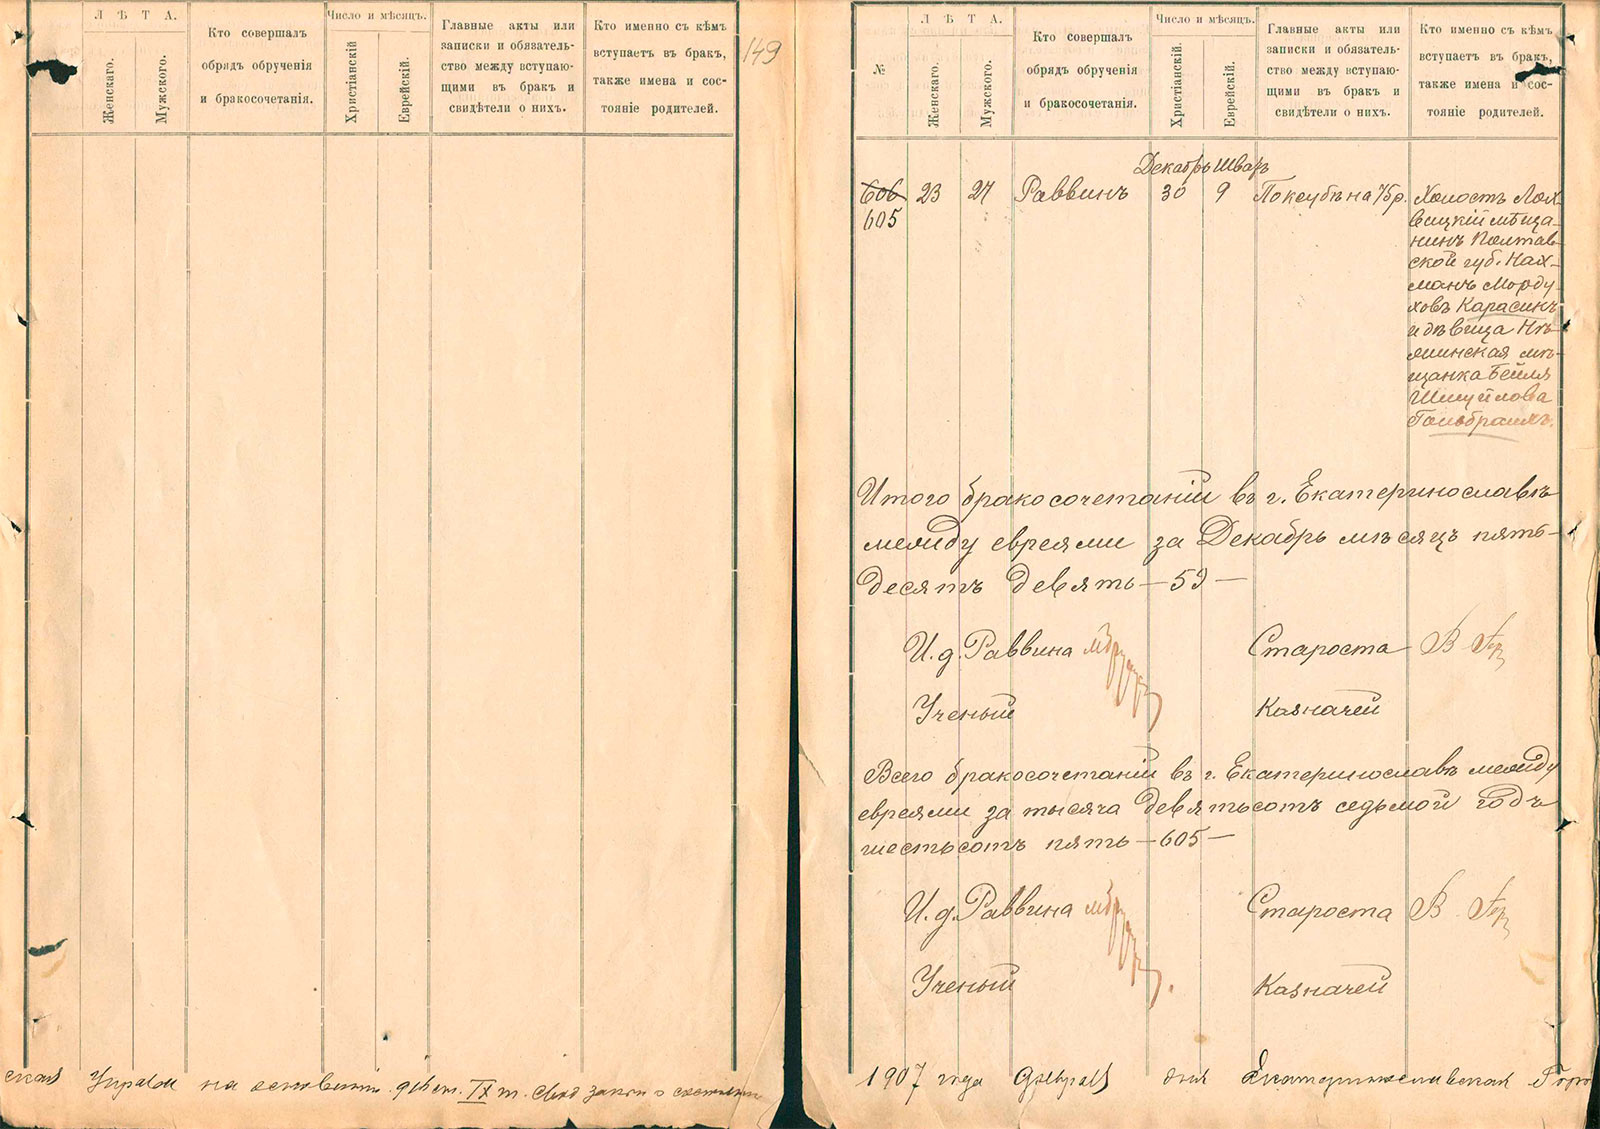 Л Ѣ Т А.
Женскаго.
Мужского.
Кто совершалъ
обрядъ обрученія
и бракосочетанія.
Число и мѣсяцъ.
Христіанскій
Еврейскій.
Главные акты или
записки и обязатель-
ство между вступаю-
щими въ бракъ и
свидѣтели о нихъ.
Кто именно съ кѣмъ
вступаетъ въ бракъ,
также имена и сос-
тояніе родителей.
149
№
Л Ѣ Т А.
Женскаго.
Мужского.
Кто совершалъ
обрядъ обрученія
и бракосочетанія.
Число и мѣсяцъ.
Христіанскій
Еврейскій.
Главные акты или
записки и обязатель-
ство между вступаю-
щими въ бракъ и
свидѣтели о нихъ.
Кто именно съ кѣмъ
вступаетъ въ бракъ,
также имена и сос-
тояніе родителей.
Декабрь Шватъ
606 23 27 Раввинъ 30 9 По ксубѣ на 75 р.
605
Холостъ Лох-
вицкій мѣща-
нинъ Полтав-
ской губ. Нах-
манъ Морду-
ховъ Карасикъ
и дѣвица Нѣ-
жинская мѣ-
щанка Бейля
Шмуйлова
Гольбраихъ.
Итого бракосочетаній въ г. Екатеринославѣ
между евреями за Декабрь мѣсяцъ пять-
десятъ девять — 59 —
И. д. Раввина
Староста В
Ученый Казначей
Всего бракосочетаній въ г. Екатеринославѣ между
евреями за тысяча девятьсотъ седьмой годъ
шестьсотъ пять — 605 —
И. д. Раввина
Староста В
Ученый Казначей
1907 года Февраля дня Екатеринославская Горо
ская Управа на основаніи 916 ст. IX т. Свод закон о состоян